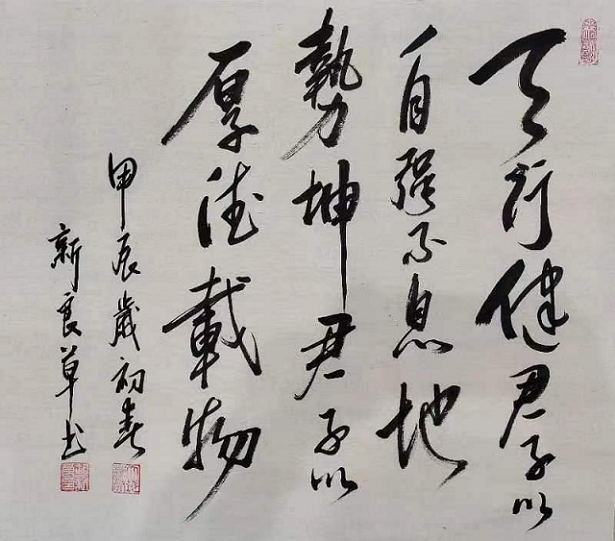 天行健君子以
自强不息地
势坤君子以
厚德载物
甲辰岁初春
新良草书